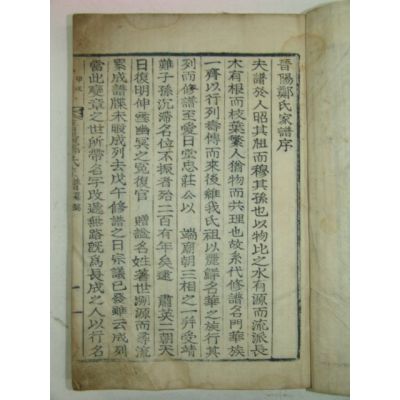 晉陽鄭氏家譜序
夫譜於人昭其祖而穆其孫也以物比之水有源而流派長
木有根而枝葉繁人猶物而共理也故系代修譜名門華族
一齊以行列壽傳而來後雖我氏祖以麗鮮名華之族行其
列而修譜至愛日堂忠莊公以 端廟朝三相之一幷受靖
難子孫沉滯名位不振者殆二百有年矣逮 肅英二朝天
日復明伸雪幽冥之冤復官 贈諡名姓著世溯源而尋流
累成譜牒未暇成列去戊午修譜之日宗議已發雖云成列
當此變章之世所帶名字改過無路旣爲長成之人以行名